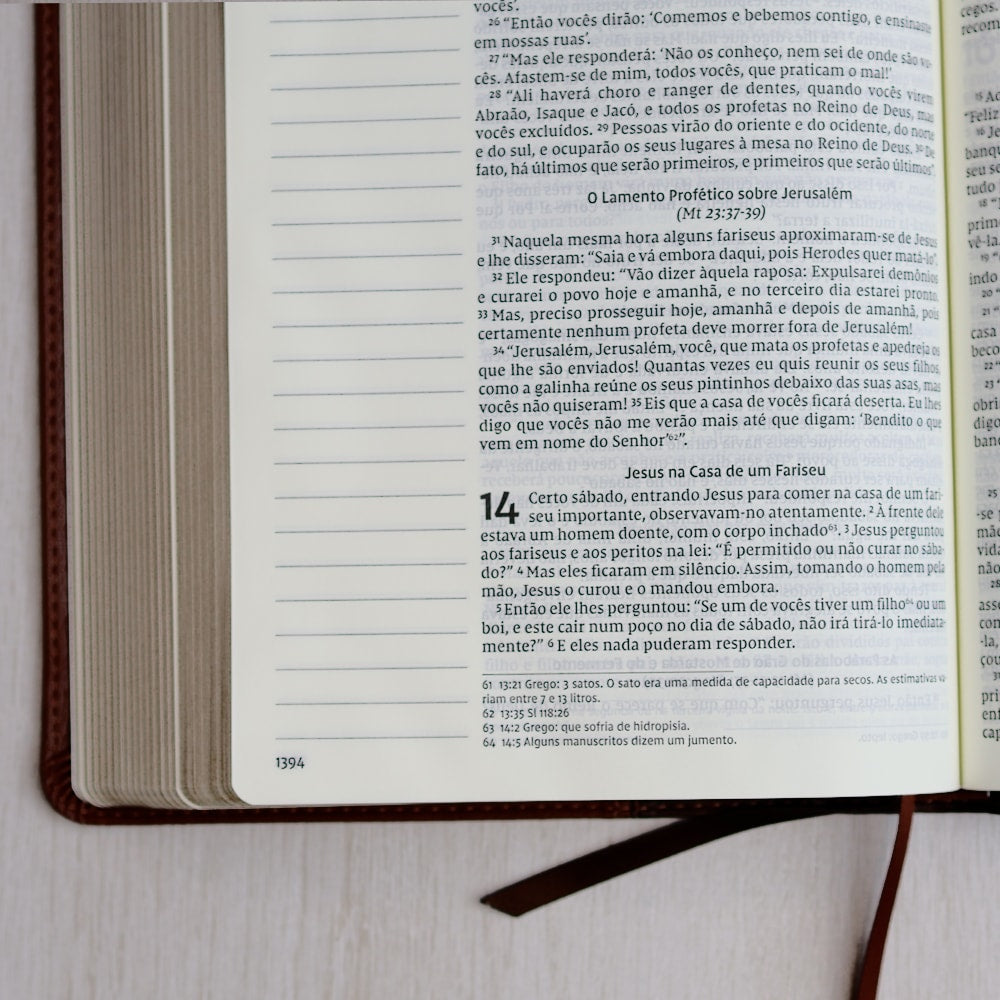 vocês'.
26 "Então vocês dirão: 'Comemos e bebemos contigo, e ensinaste
em nossas ruas'.
27 "Mas ele responderá: 'Não os conheço, nem sei de onde são vo-
cês. Afastem-se de mim, todos vocês, que praticam o mal!'
28 "Ali haverá choro e ranger de dentes, quando vocês virem
Abraão, Isaque e Jacó, e todos os profetas no Reino de Deus, mas
vocês excluídos. 29 Pessoas virão do oriente e do ocidente, do norte
e do sul, e ocuparão os seus lugares à mesa no Reino de Deus. 30 De
fato, há últimos que serão primeiros, e primeiros que serão últimos".
O Lamento Profético sobre Jerusalém
(Mt 23:37-39)
31 Naquela mesma hora alguns fariseus aproximaram-se de Jesus
e lhe disseram: "Saia e vá embora daqui, pois Herodes quer matá-lo".
32 Ele respondeu: "Vão dizer àquela raposa: Expulsarei demônios
e curarei o povo hoje e amanhã, e no terceiro dia estarei pronto.
33 Mas, preciso prosseguir hoje, amanhã e depois de amanhã, pois
certamente nenhum profeta deve morrer fora de Jerusalém!
34 "Jerusalém, Jerusalém, você, que mata os profetas e apedreja os
que lhe são enviados! Quantas vezes eu quis reunir os seus filhos,
como a galinha reúne os seus pintinhos debaixo das suas asas, mas
vocês não quiseram! 35 Eis que a casa de vocês ficará deserta. Eu lhes
digo que vocês não me verão mais até que digam: 'Bendito o que
vem em nome do Senhor'62".
Jesus na Casa de um Fariseu
14 Certo sábado, entrando Jesus para comer na casa de um fari-
seu importante, observavam-no atentamente. 2 À frente dele
estava um homem doente, com o corpo inchado63. 3 Jesus perguntou
aos fariseus e aos peritos na lei: "É permitido ou não curar no sába-
do?" 4 Mas eles ficaram em silêncio. Assim, tomando o homem pela
mão, Jesus o curou e o mandou embora.
5 Então ele lhes perguntou: "Se um de vocês tiver um filho64 ou um
boi, e este cair num poço no dia de sábado, não irá tirá-lo imediata-
mente?" 6 E eles nada puderam responder.
61 13:21 Grego: 3 satos. O sato era uma medida de capacidade para secos. As estimativas va-
riam entre 7 e 13 litros.
62 13:35 Sl 118:26
63 14:2 Grego: que sofria de hidropisia.
64 14:5 Alguns manuscritos dizem um jumento.
1394